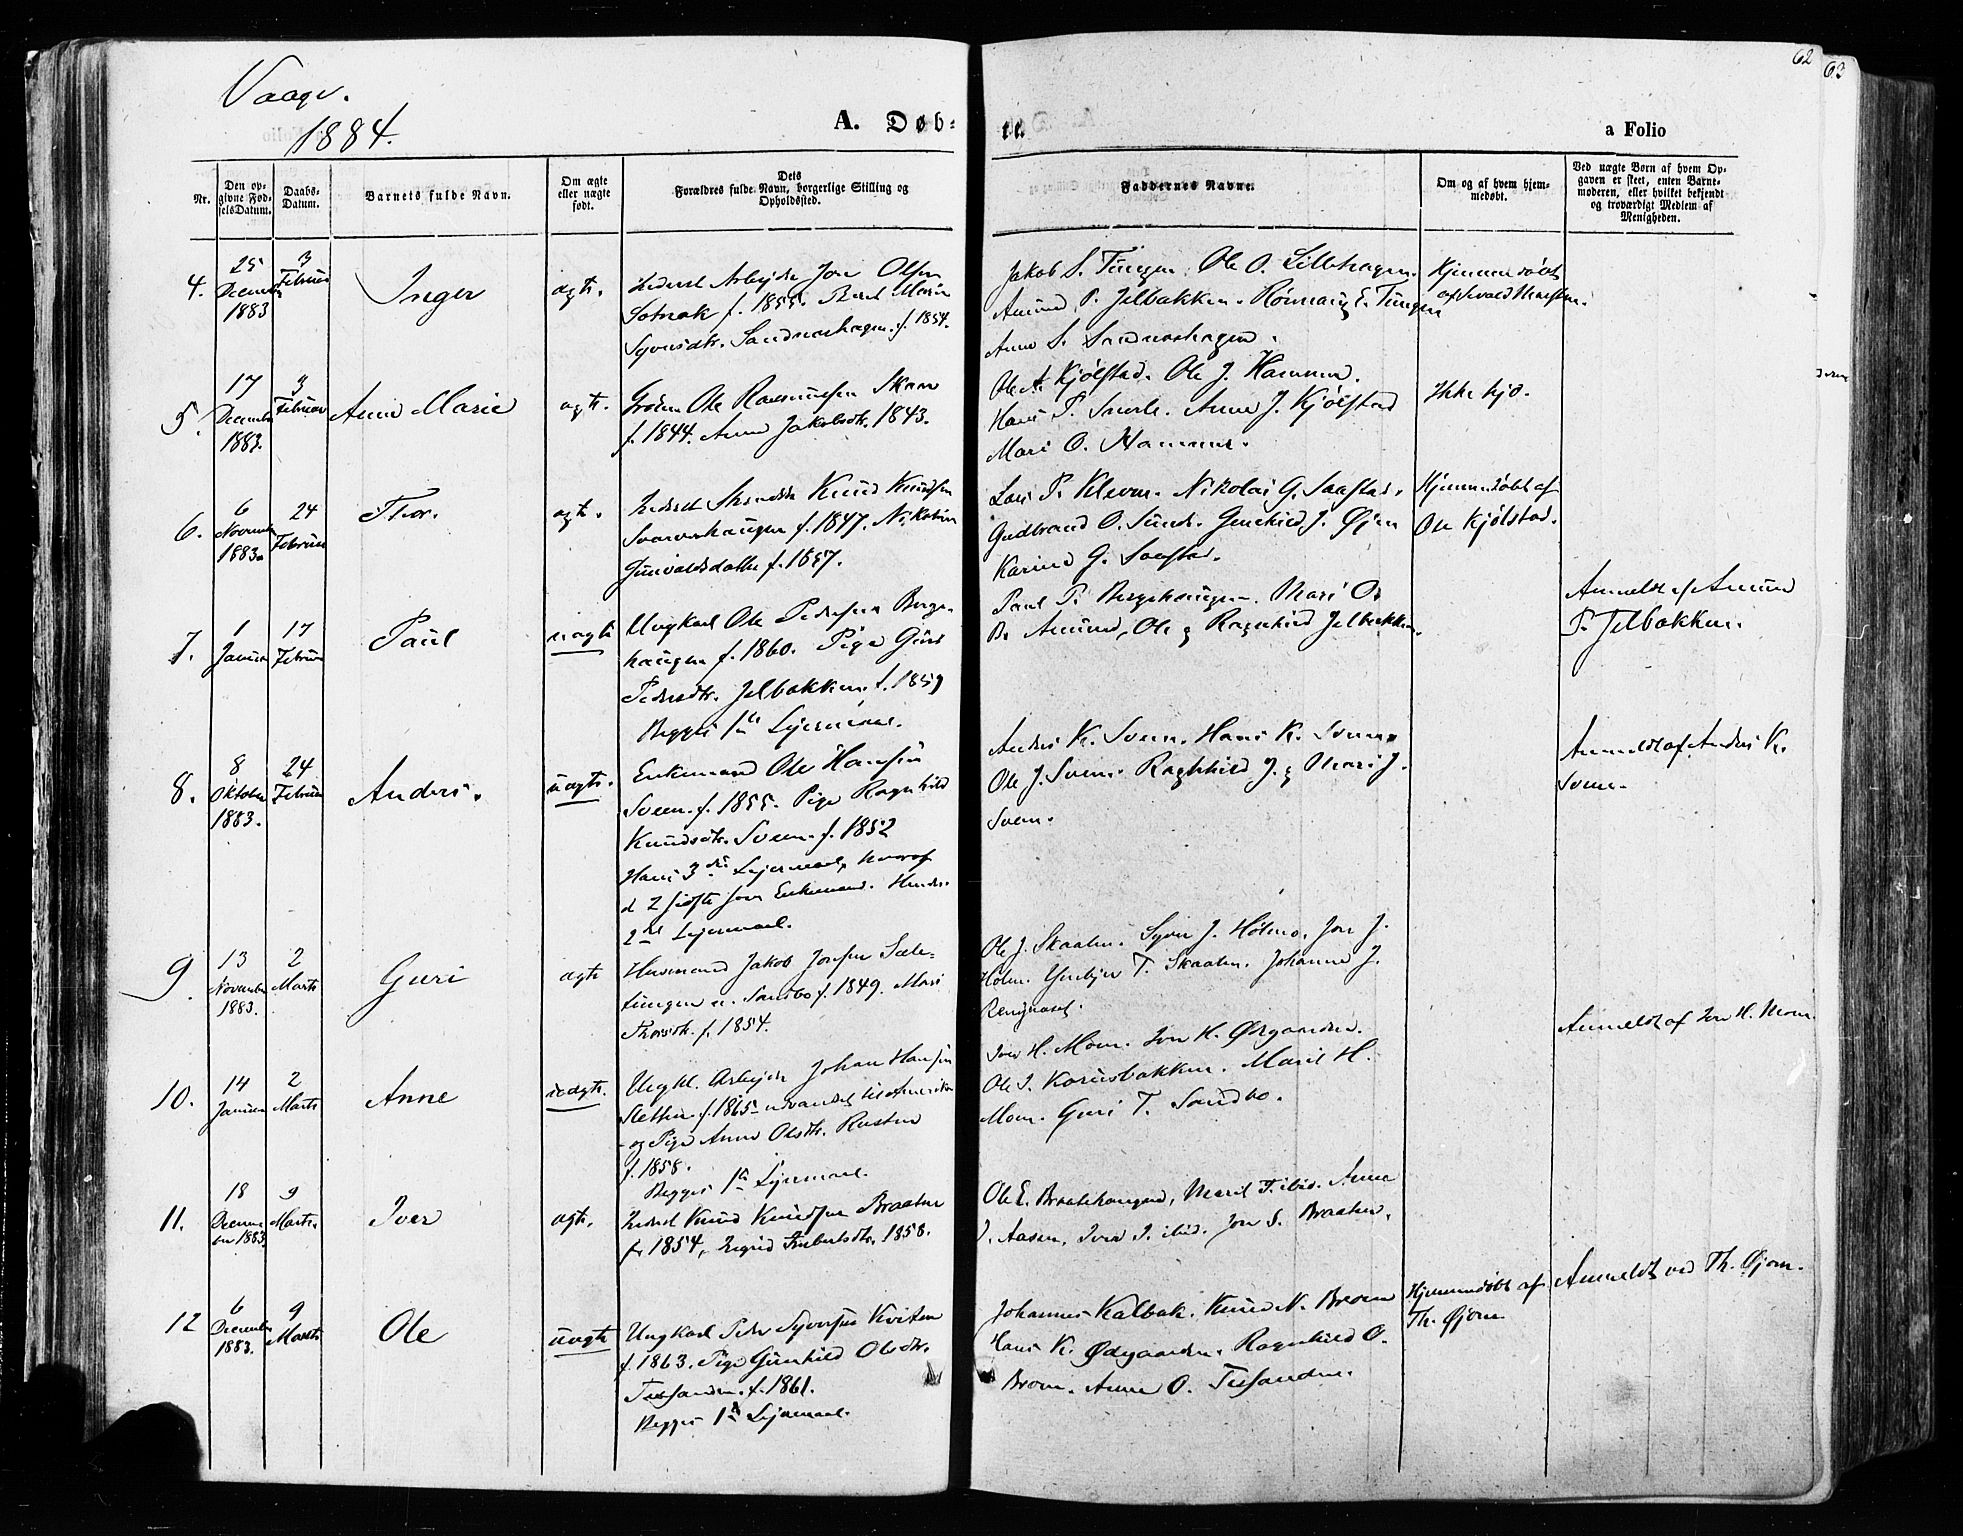 62
63
Vaage.
1884.
A. Døb-
te.
a Folio
Nr.
Den op-
givne Fød-
selsDatum.
Daabs-
Datum.
Barnets fulde Navn.
Om ægte
eller uægte
født.
Dets
Forældres fulde Navn, borgerlige Stilling og
Opholdssted.
Faddernes Navne.
Om og af hvem hjem-
medøbt.
Ved uægte Børn af hvem Op-
gaven er skeet, enten Barne-
moderen, eller hvilket bekjendt
og troværdigt Medlem af
Menigheden.
4.
25
December
1883
3
Februar
Inger
ægte.
Inderst Arbejder Jon Olsen
f. 1855. Marie
Syversdtr. Sandneshagen. f. 1854.
Jakob S. Tungen. Ole O. Lillehagen.
Amund P. Jelbakken. Rønnaug E. Tungen
Anne S. Sandneshagen.
Hjemmedøbt
af
5.
17
December
1883.
3
Februar
Anne Marie
ægte.
Ole Rasmussen Skam
f. 1844. Anne Jakobsdtr. 1843.
Ole A. Kjølstad. Ole J. Hammer.
Hans P. Anne J. Kjølstad
Mari O. Hammer.
Ikke hjd.
6.
6
November
1883
24
Februar
Thor.
ægte.
Inderst Knud Knudsen
f. 1847.
Gunvaldsdatter f. 1857.
P. Kleven. Nikolai G. Saastad.
Gudbrand O. Sunde. Gunhild J. Øjen
Karine G. Saastad.
Hjemmedøbt af
Ole Kjølstad.
7.
1
Januar
17
Februar
Paul
uægte
Ungkarl Ole Pedersen Berge-
haugen f. 1860. Pige Guri
Pedersdtr. Jelbakken. f. 1859
Begges 1ste Lejermaal.
Paul P. Bergehaugen. Mari O.
B. Amund, Ole og Ragnhild Jelbakken.
Anmeldt af Amund
P. Jelbakken.
8.
8
Oktober
1883.
24
Februar
Anders.
uægte.
Enkemand Ole Hansen
Sveen. f. 1855. Pige Ragnhild
Knudsdtr. Sveen. f. 1852
Hans 3die Lejermaal, hvoraf
d 2 sidste som Enkemand. Hendes
2det Lejermaal.
Anders K. Sveen. Hans K. Sveen
Ole J. Sveen. Ragnhild J. og Mari J.
Sveen.
Anmeldt af Anders K.
Sveen.
9.
13
November
1883.
2
Marts
Guri
ægte
Husmand Jakob Jonsen Sæle-
tungen u. Sandbo f. 1849. Mari
Thorsdtr. f. 1854.
Ole J. Skaalen. Syver J. Holmo. Jon J.
Holm. T. Skaalen. Johanne J.
10.
14
Januar
2
Marts
Anne
uægte.
Ungkl. Arbejder Johan Hansen
Sletten f. 1865 udvandret til Amerika
og Pige Anne Olsdtr. Rusten
f. 1858.
Begges 1ste Lejermaal.
Iver H. Moen. Jon H. Ødegaarden.
Ole I. Kornsbakken. Marit H.
Moen. Guri T. Sandbo.
Anmeldt af Iver H. Moen.
11.
18
Decem-
ber 1883.
9
Marts.
Iver
ægte.
Inderst Knud Knudsen Braaten
f. 1854, Sigrid 1858.
Ole E. Braatehaugen, Marit T. ibid. Anne
I. Aasen, Iver I. ibid. Jon S. Braaten.
12
6
December
1883.
9
Marts
Ole
uægte
Ungkarl Peder Syversen Kviten
f. 1863. Pige Gunhild Olsdtr.
Tessanden. f. 1861.
Begges 1ste Lejermaal.
Johannes Kalbak. Knud N. Brovn
Hans K. Ødegaarden. Ragnhild O.
Brovn. Anne O. Tessanden.
Hjemmedøbt af
Th. Øjom
Anmeldt ved Th. Øjom.